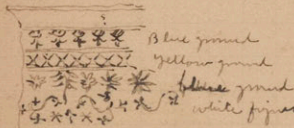 Blue ground
yellow ground
blue ground
white figures